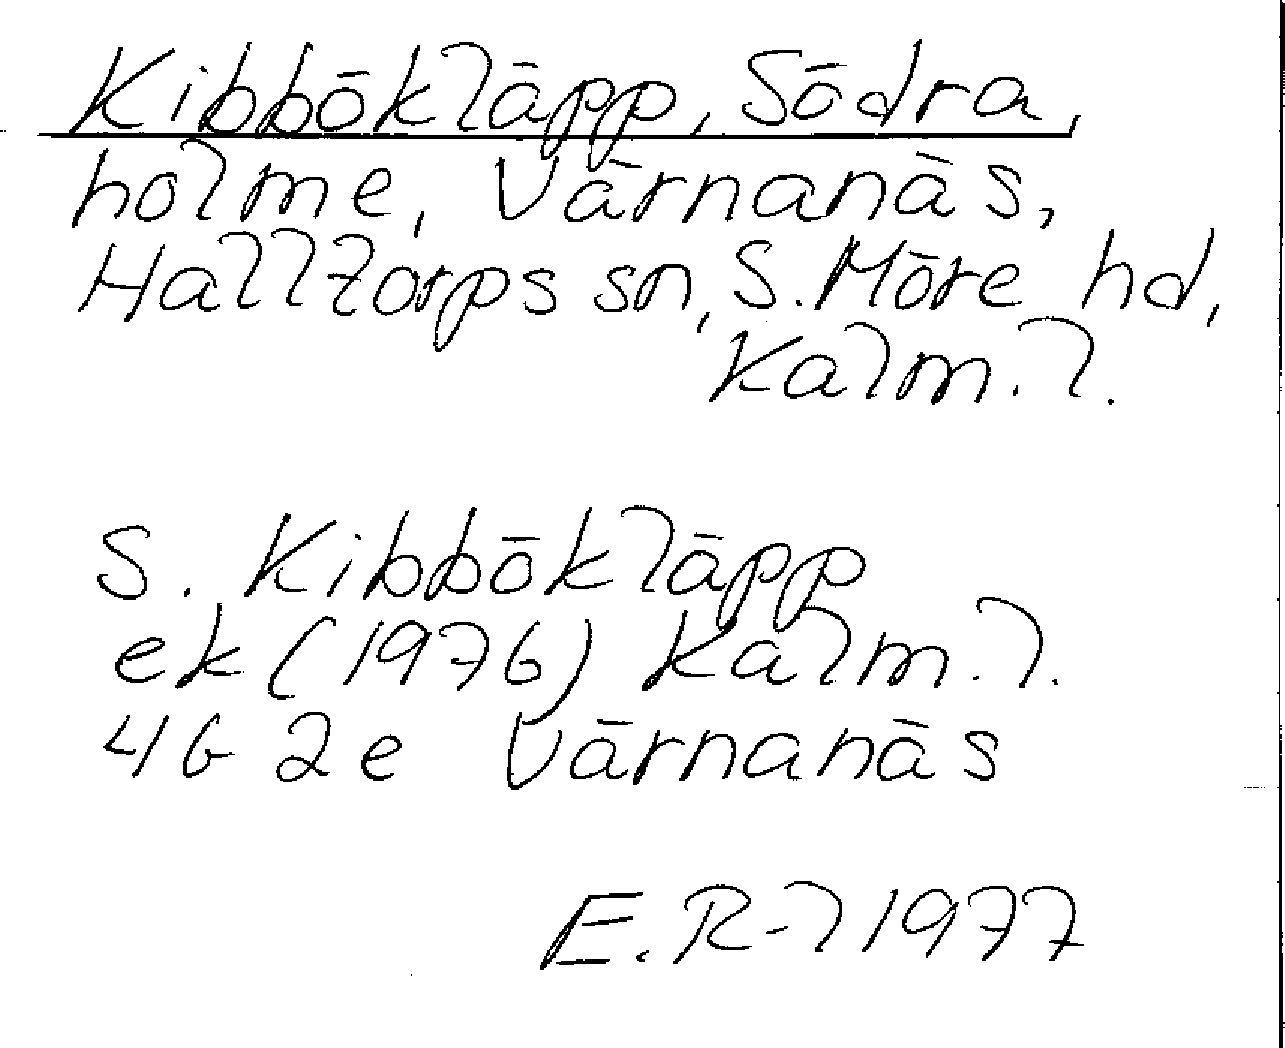 Kibbökläpp, Södra,
holme, Värnanäs,
Halltorps sn, S. Möre hd,
Kalm. l.
S. Kibbökläpp
ek (1976) Kalm. l.
4G 2e Värnanäs
E. R-l 1977